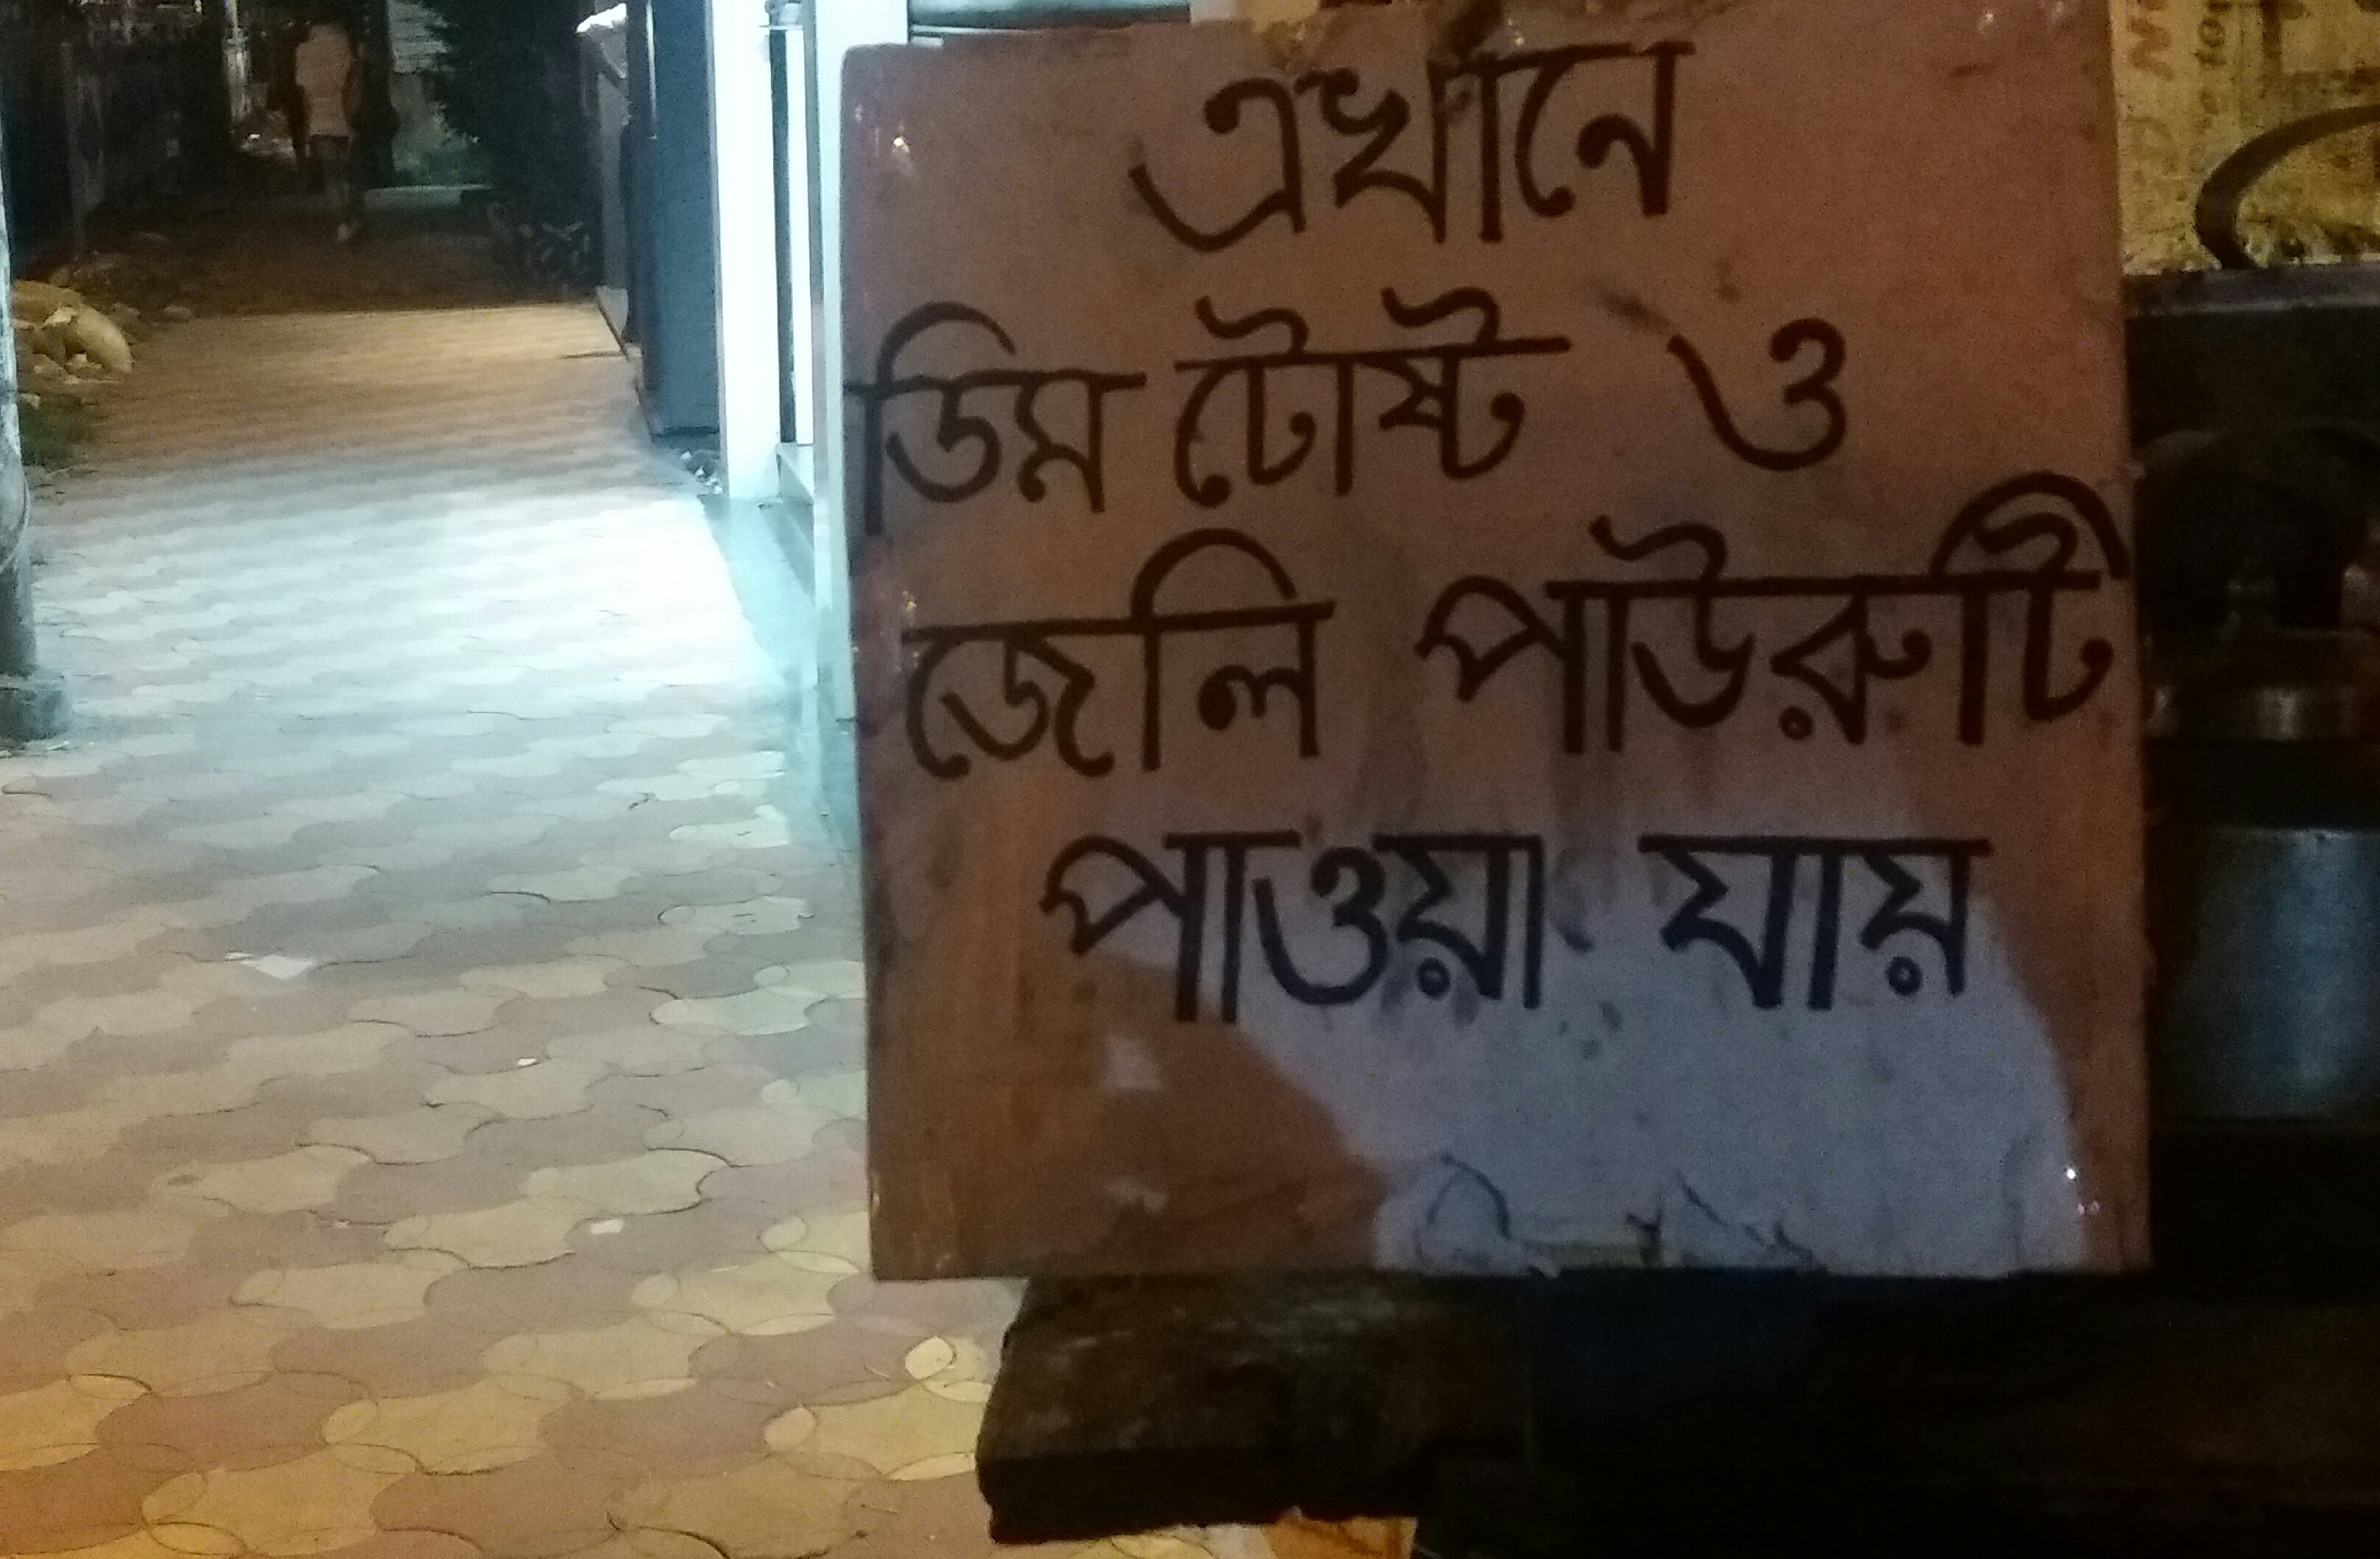 এখানে
ডিম টোষ্ট ও
জেলি পাউরুটি
পাওয়া যায়